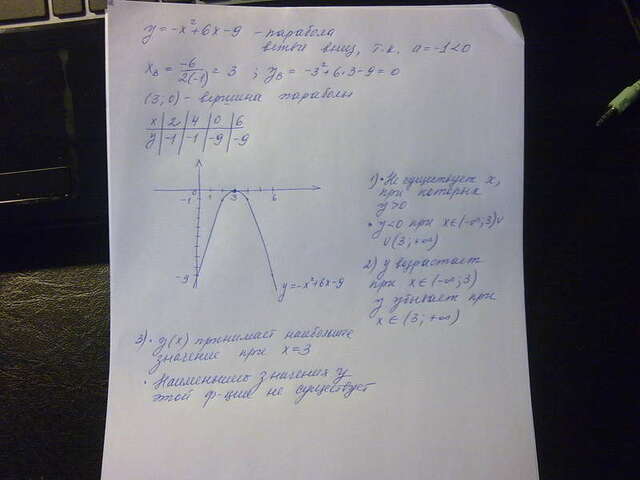 y=-x²+6x-9 - парабола
ветви вниз, т.к. a=-1<0
x_в = -6/2(-1) = 3 ; y_в = -3²+6·3-9=0
(3;0) - вершина параболы
x | 2 | 4 | 0 | 6
y | -1 | -1 | -9 | -9
-1 0 1 3 6
-9
y=-x²+6x-9
1) • Не существует x,
при которых
y>0
• y<0 при x∈(-∞;3)∪
∪(3;+∞)
2) y возрастает
при x∈(-∞;3)
y убывает при
x∈(3;+∞)
3) • y(x) принимает наибольшее
значение при x=3
• Наименьшего значения у
этой ф-ции не существует